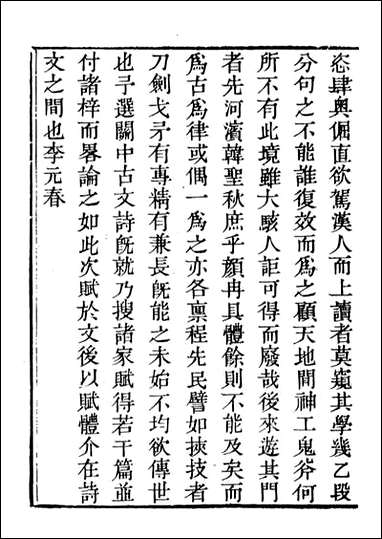 恣肆奥倔直欲駕漢人而上讀者莫窺其學幾乙段
分句之不能誰復效而爲之顧天地間神工鬼斧何
所不有此境雖大駭人詎可得而廢哉後來遊其門
者先河濱韓聖秋庶乎顏冉具體餘則不能及矣而
爲古爲律或偶一爲之亦各稟程先民譬如挾技者
刀劍戈矛有專精有兼長旣能之未始不均欲傳世
也予選關中古文詩旣就乃搜諸家賦得若干篇並
付諸梓而畧論之如此次賦於文後以賦體介在詩
文之間也李元春